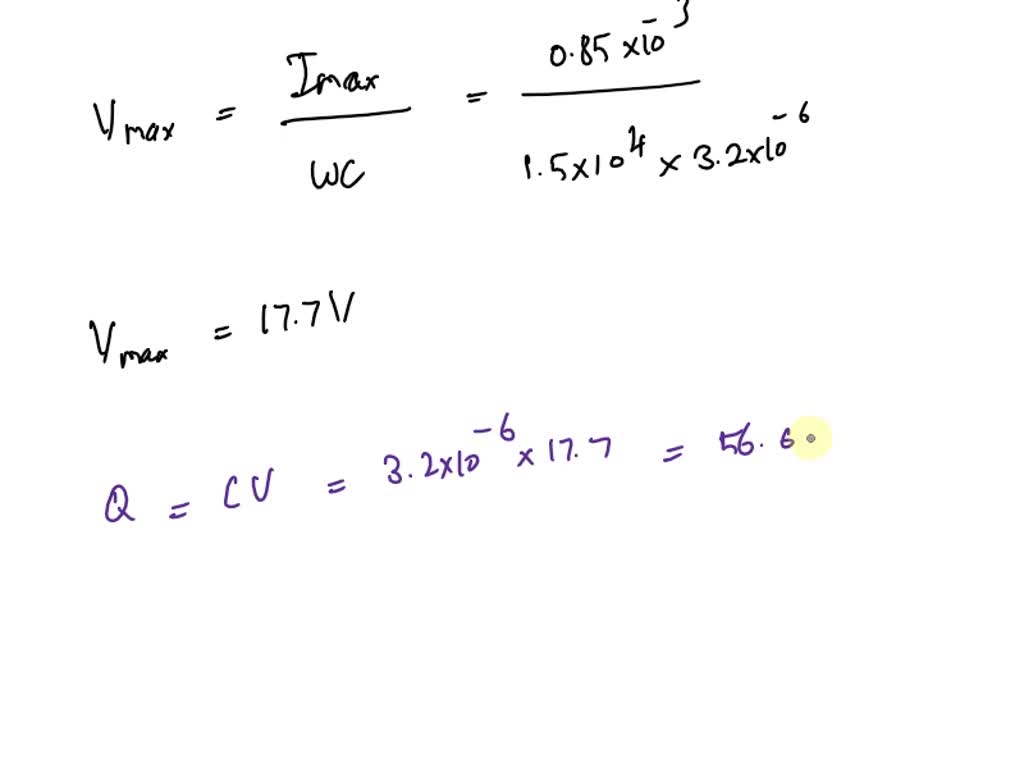 Vmax = Imax / WC = 0.85 × 10^-3 / 1.5×10^4 × 3.2×10^-6
Vmax = 17.7V
Q = CV = 3.2×10^-6 × 17.7 = 56.6